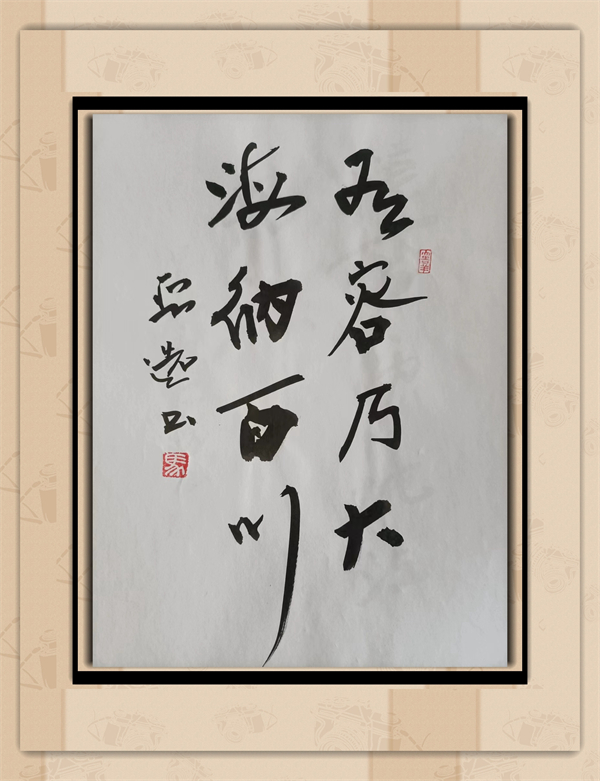 有容乃大
海纳百川
书
馬